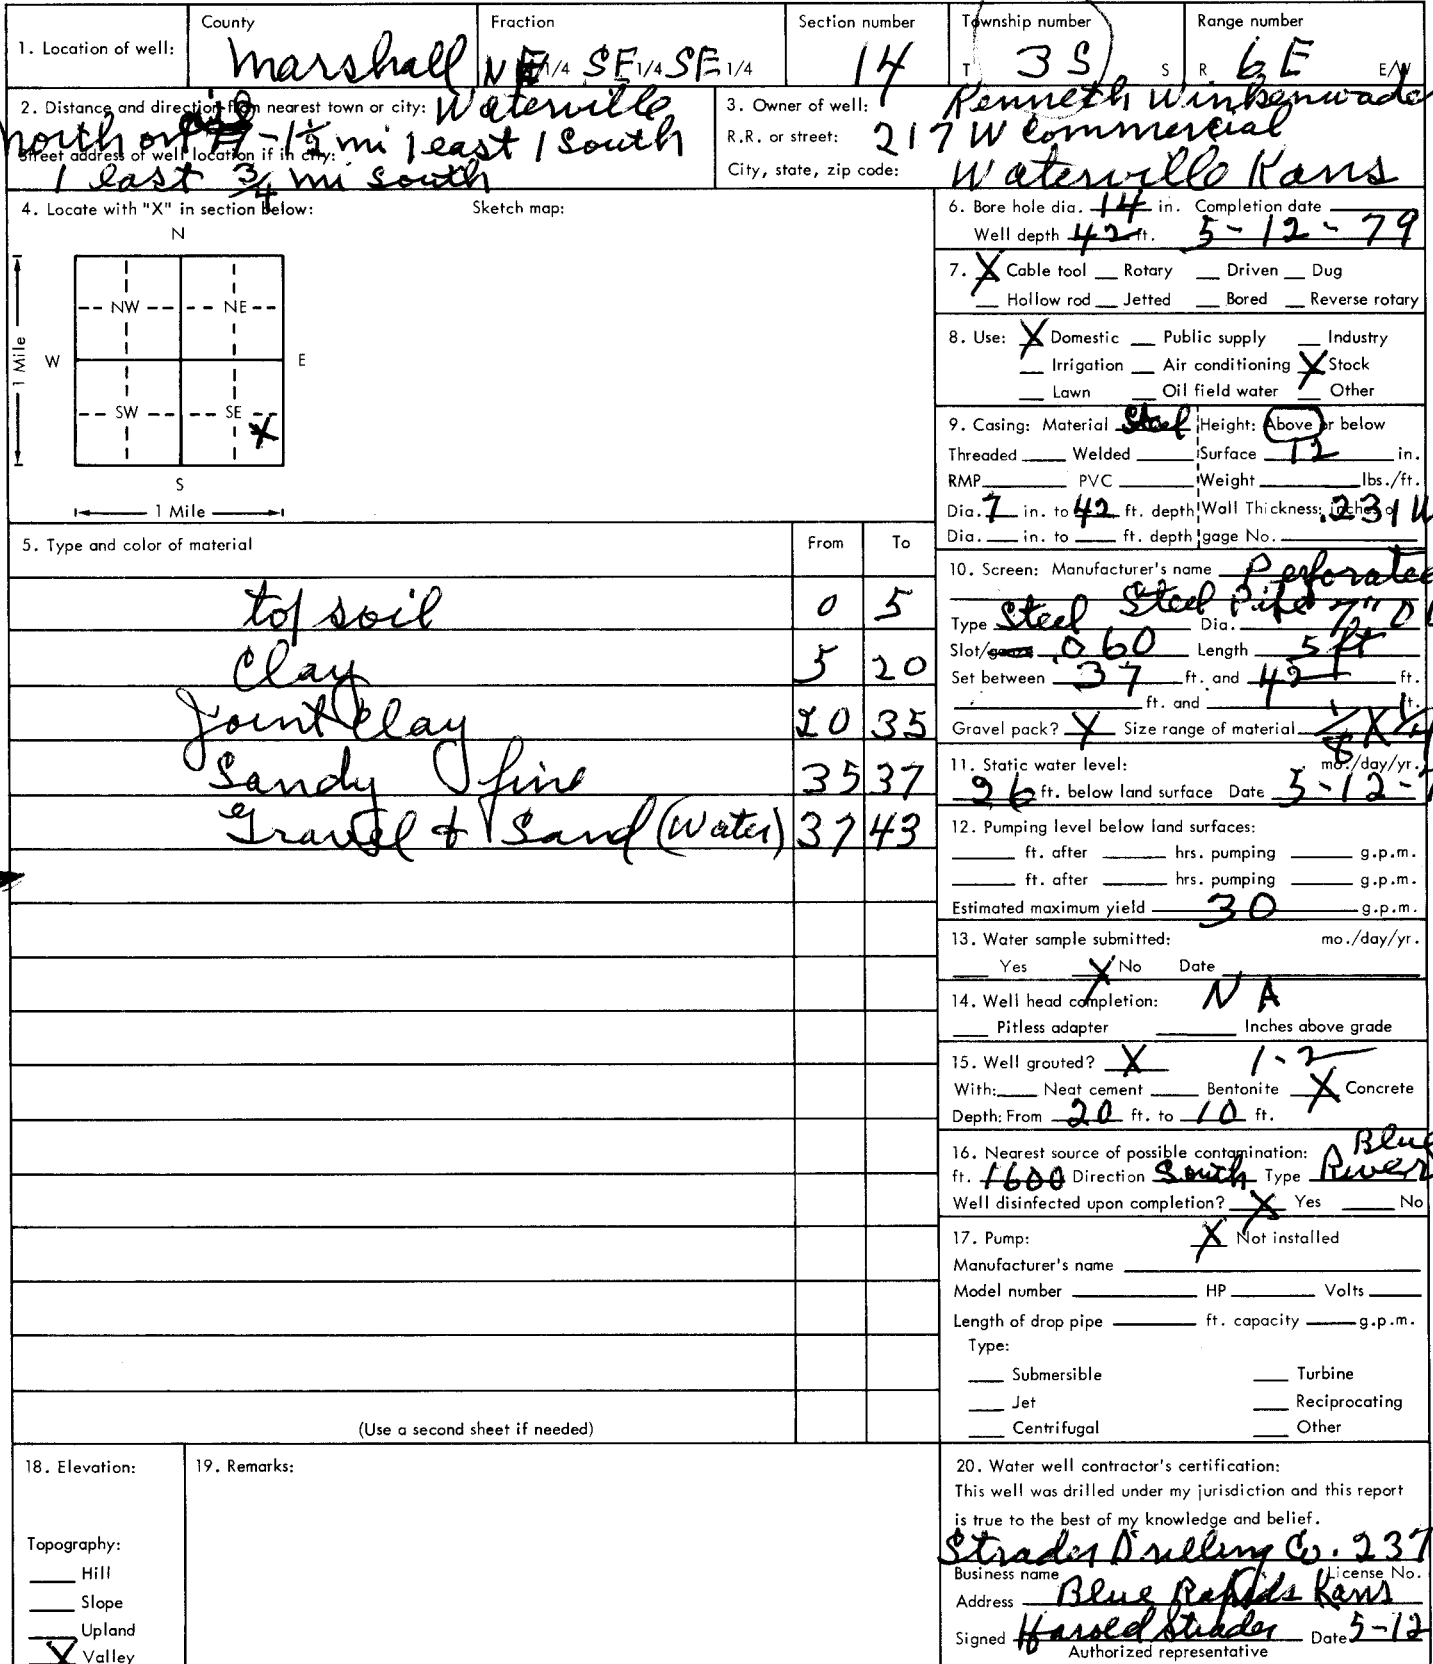 County Fraction Section number Township number Range number
1. Location of well: Marshall NE 1/4 SE 1/4 SE 1/4 14 T 3 S S R 6 E E/W
2. Distance and direction from nearest town or city: Waterville
north on 1½ mi 1 east 1 South
Street address of well location if in city:
1 east ¾ mi south
3. Owner of well: Kenneth Winkenwade
R.R. or street: 217 W Commercial
City, state, zip code: Waterville Kans
4. Locate with "X" in section below: Sketch map:
N
NW NE
W E
1 Mile
SW SE X
S
1 Mile
5. Type and color of material From To
top soil 0 5
Clay 5 20
Joint Clay 20 35
Sandy fine 35 37
Gravel & Sand (Water) 37 43
(Use a second sheet if needed)
6. Bore hole dia. 14 in. Completion date
Well depth 42 ft. 5-12-79
7. X Cable tool Rotary Driven Dug
Hollow rod Jetted Bored Reverse rotary
8. Use: X Domestic Public supply Industry
Irrigation Air conditioning X Stock
Lawn Oil field water Other
9. Casing: Material Steel Height: Above or below
Threaded Welded Surface 12 in.
RMP PVC Weight lbs./ft.
Dia. 7 in. to 42 ft. depth Wall Thickness: inches or .231 W
Dia. in. to ft. depth gage No.
10. Screen: Manufacturer's name Perforated
Steel Pipe
Type Steel Dia. 7" O
Slot/gauze .060 Length 5 ft
Set between 37 ft. and 42 ft.
ft. and ft.
Gravel pack? X Size range of material 1/8 X 1/4
11. Static water level: mo./day/yr.
26 ft. below land surface Date 5-12-7
12. Pumping level below land surfaces:
ft. after hrs. pumping g.p.m.
ft. after hrs. pumping g.p.m.
Estimated maximum yield 30 g.p.m.
13. Water sample submitted: mo./day/yr.
Yes X No Date
14. Well head completion: N A
Pitless adapter Inches above grade
15. Well grouted? X 1-2
With: Neat cement Bentonite X Concrete
Depth: From 20 ft. to 10 ft.
16. Nearest source of possible contamination: Blue
ft. 1600 Direction South Type River
Well disinfected upon completion? X Yes No
17. Pump: X Not installed
Manufacturer's name
Model number HP Volts
Length of drop pipe ft. capacity g.p.m.
Type:
Submersible Turbine
Jet Reciprocating
Centrifugal Other
18. Elevation:
Topography:
Hill
Slope
Upland
X Valley
19. Remarks:
20. Water well contractor's certification:
This well was drilled under my jurisdiction and this report
is true to the best of my knowledge and belief.
Strader Drilling Co. 237
Business name License No.
Address Blue Rapids Kans
Signed Harold Strader Date 5-12
Authorized representative